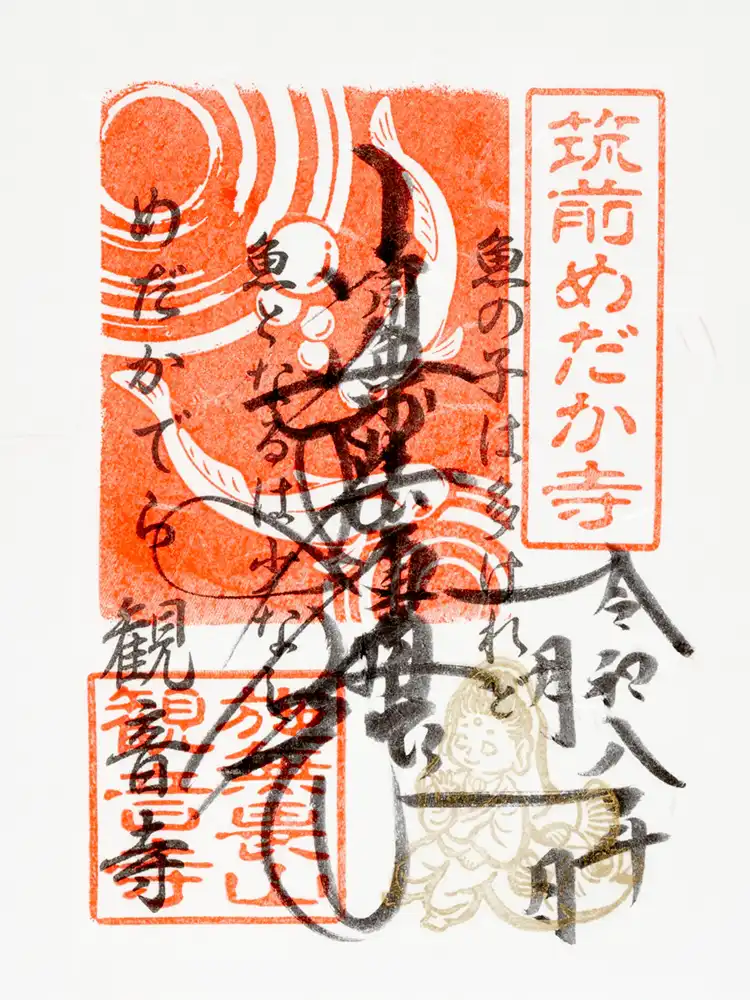 筑前めだか寺
令和八年
一月一日
魚の子は多けれど
魚となるは少なし
めだかでら
観音寺
施無畏山
観音寺